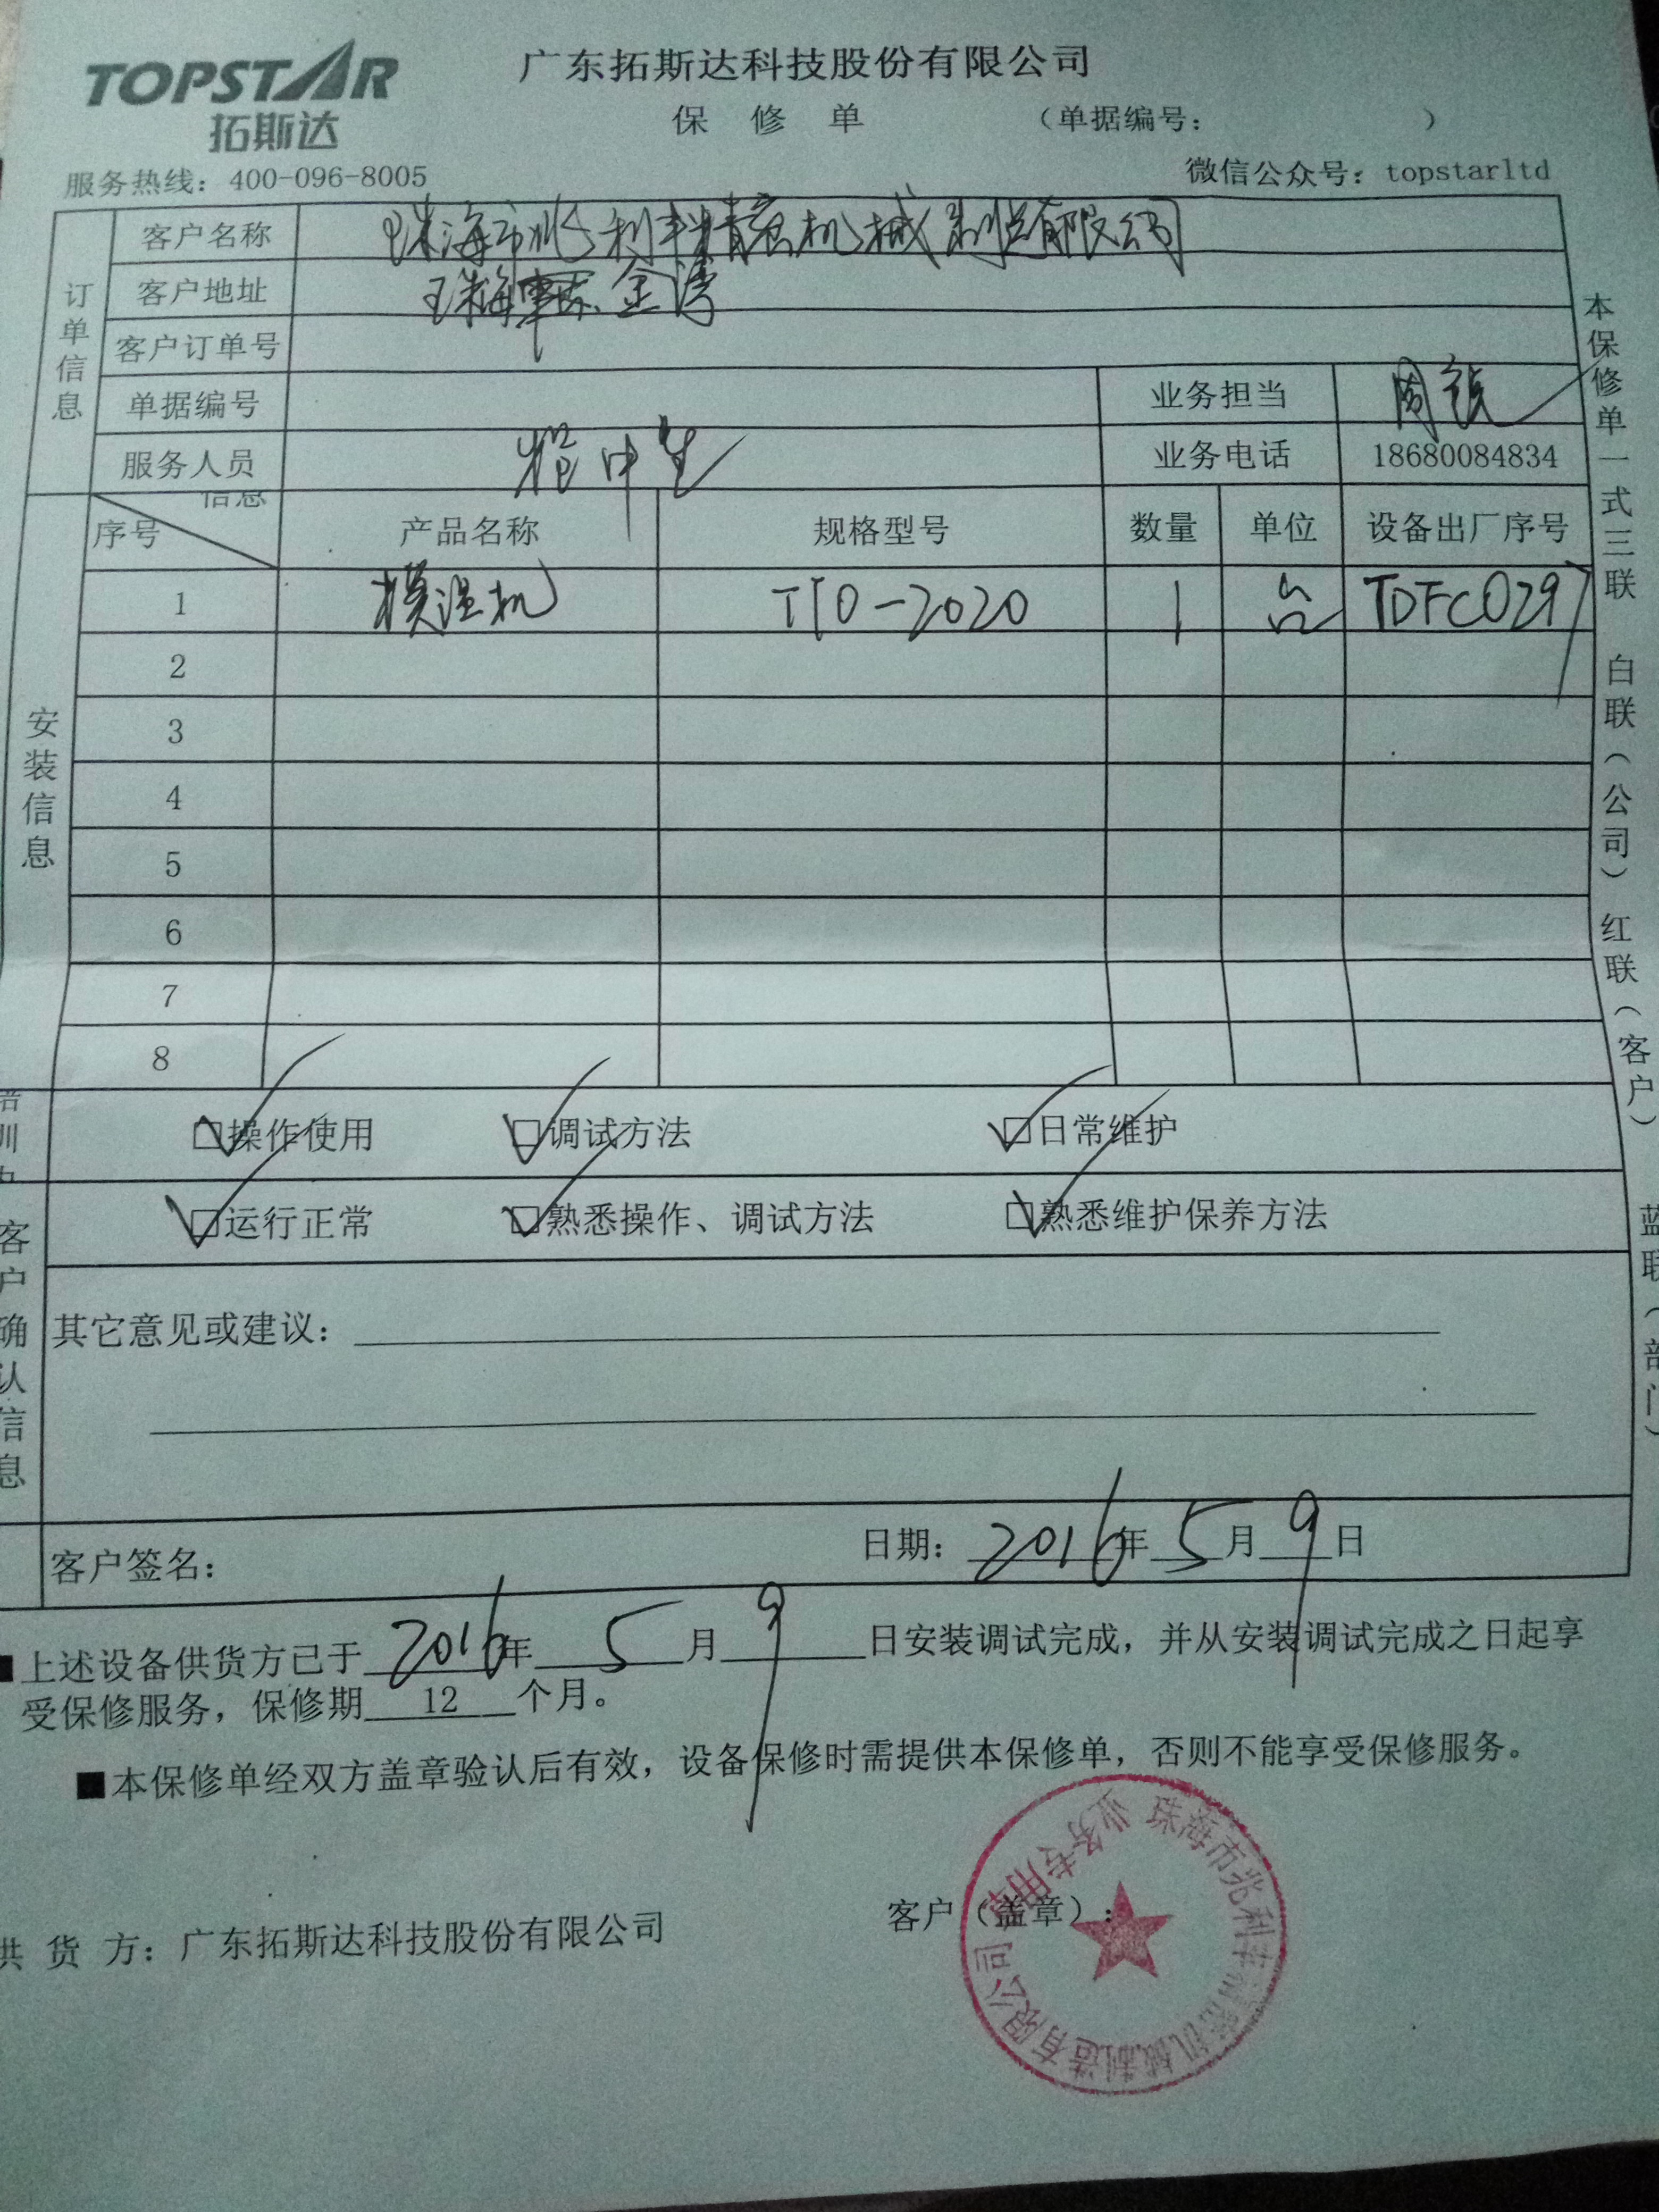 TOPSTAR
拓斯达
广东拓斯达科技股份有限公司
保修单 （单据编号： ）
服务热线：400-096-8005 微信公众号：topstarltd
订单信息
客户名称 珠海市兆利丰精密机械制造有限公司
客户地址 珠海 金湾
客户订单号
单据编号 业务担当 周
服务人员 中 业务电话 18680084834
安装信息
信息
序号 产品名称 规格型号 数量 单位 设备出厂序号
1 模温机 T10-2020 1 台 TDFC0297
2
3
4
5
6
7
8
□操作使用 □调试方法 □日常维护
客户确认信息
□运行正常 □熟悉操作、调试方法 □熟悉维护保养方法
其它意见或建议：
客户签名： 日期：2016年5月9日
■上述设备供货方已于2016年5月9日安装调试完成，并从安装调试完成之日起享
受保修服务，保修期12个月。
■本保修单经双方盖章验认后有效，设备保修时需提供本保修单，否则不能享受保修服务。
供货方：广东拓斯达科技股份有限公司 客户（盖章）：
珠海市兆利丰精密机械制造有限公司
业务专用章
本保修单一式三联 白联（公司）红联（客户） 蓝联（部门）